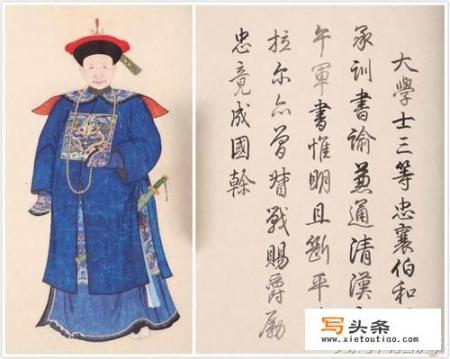 大學士三等忠襄伯和
承訓書諭兼通清漢
午軍書惟明且斷平
拉爾亦曾督戰賜爵勵
忠竟成國幹
写头条
www.xietoutiao.com